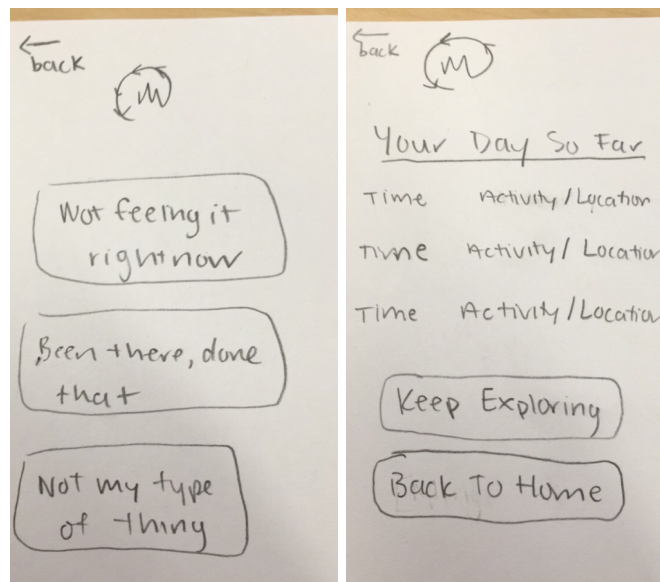 back
m
Not feeling it
right now
Been there, done
that
Not my type
of thing
back
m
Your Day So Far
Time Activity/Location
Time Activity/Location
Time Activity/Location
Keep Exploring
Back To Home